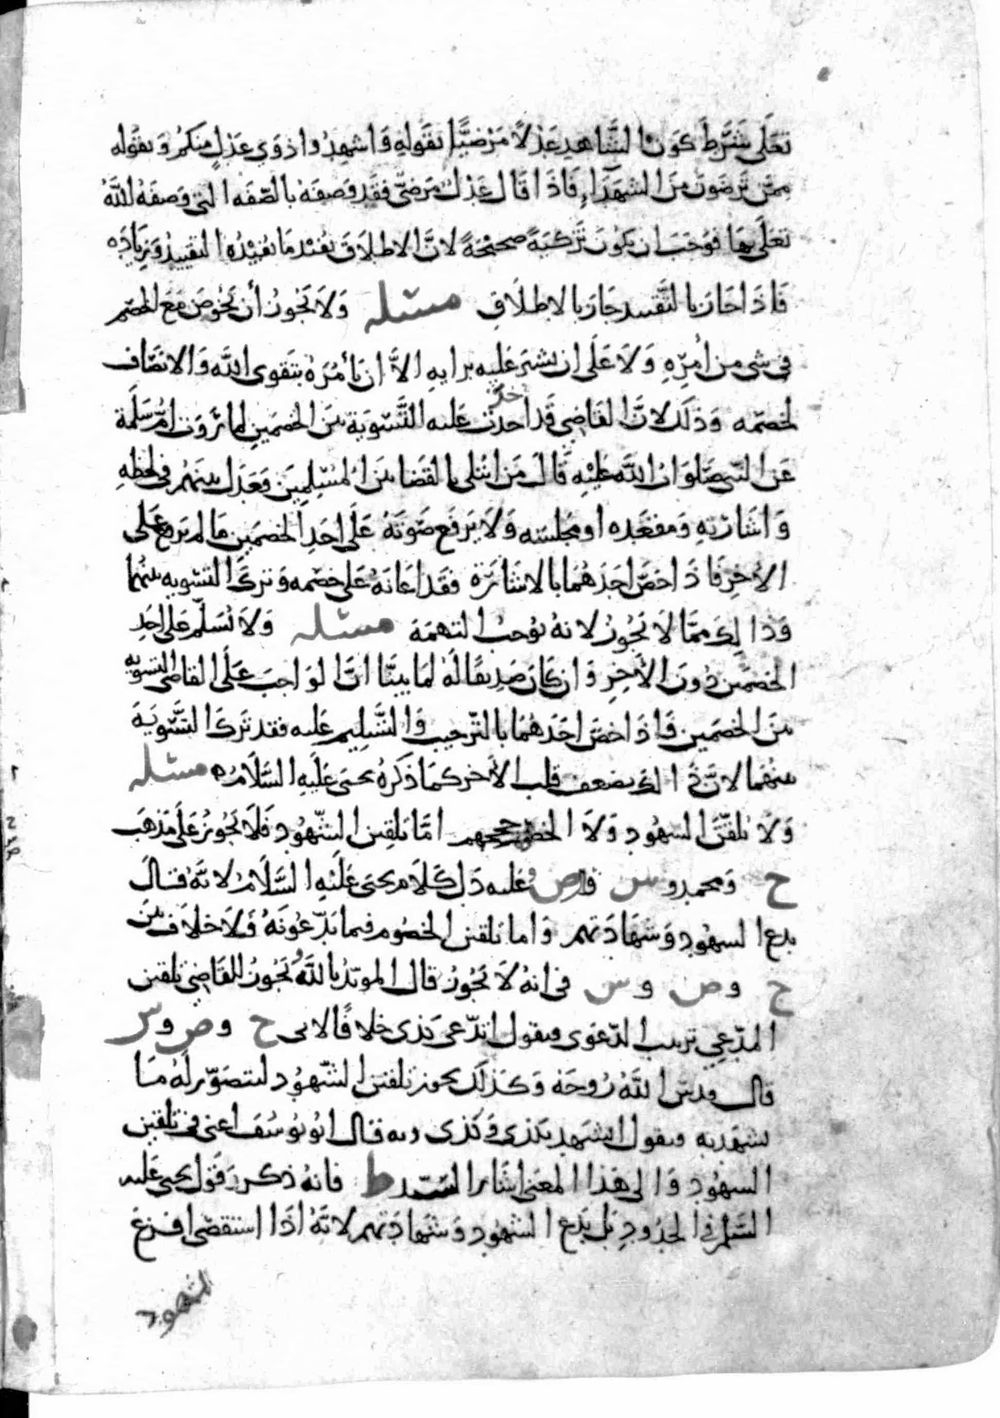 تعلى شرط كون الشاهد عدلا مرضيا بقوله واشهدوا ذوي عدل منكم وبقوله
ممن ترضون من الشهداء فاذا قال عدل مرضى فقد وصفه بالصفه التى وصفه الله
تعلى بها فوجب ان يكون تزكية صحيحة لان الاطلاق يفيد ما يفيده التقييد وزياده
فاذا جاز بالتقييد جاز بالاطلاق مسئله ولا يجوز أن يخوض مع الخصم
في شى من أمره ولا على ان يشير عليه برايه الا ان يأمره بتقوى الله والانصاف
لخصمه وذلك لان القاضي قد اخذت عليه التسوية بين الخصمين لما روت ام سلمة
عن النبي صلوات الله عليه قال من ابتلى بالقضا بين المسلمين فعدل بينهم في لحظه
واشارته ومقعده او مجلسه ولا يرفع صوته على احد الخصمين ما لم يرفع على
الأخر فاذا خص احدهما بالاشارة فقد اعانه على خصمه وترك التسويه بينهما
وذلك مما لا يجوز لانه يوجب التهمة مسئله ولا يسلم على احد
الخصمين دون الأخر وان كان صديقا له لما بينا ان الواجب على القاضى التسويه
بين الخصمين فاذا خص احدهما بالترحيب والتسليم عليه فقد ترك التسوية
بينهما لان ذلك يضعف قلب الأخر كما ذكره يحيى عليه السلام مسئله
ولا يلقن الشهود ولا الخصوم حججهم اما تلقين الشهود فلا يجوز على مذهب
ح ومحمد و س و ص وعليه دل كلام يحيى عليه السلام لانه قال
يدع الشهود وشهادتهم واما تلقين الخصوم فيما يدعونه فلا خلاف بين
ح و ص و س في انه لا يجوز قال المويد بالله يجوز للقاضي تلقين
المدعي ترتيب الدعوى فيقول اتدعى بذى خلافا لابى ح و ص و س
قال قدس الله روحه وكذلك يجوز تلقين الشهود ليتصور له ما
يشهد به فيقول ايشهد بكذى وكذى وبه قال ابو يوسف اعنى في تلقين
الشهود والى هذا المعنى اشار السيد ط فانه ذكر قول يحيى عليه
السلم في الحدود بل يدع الشهود وشهادتهم لانه اذا استقصى افزع
الشهود